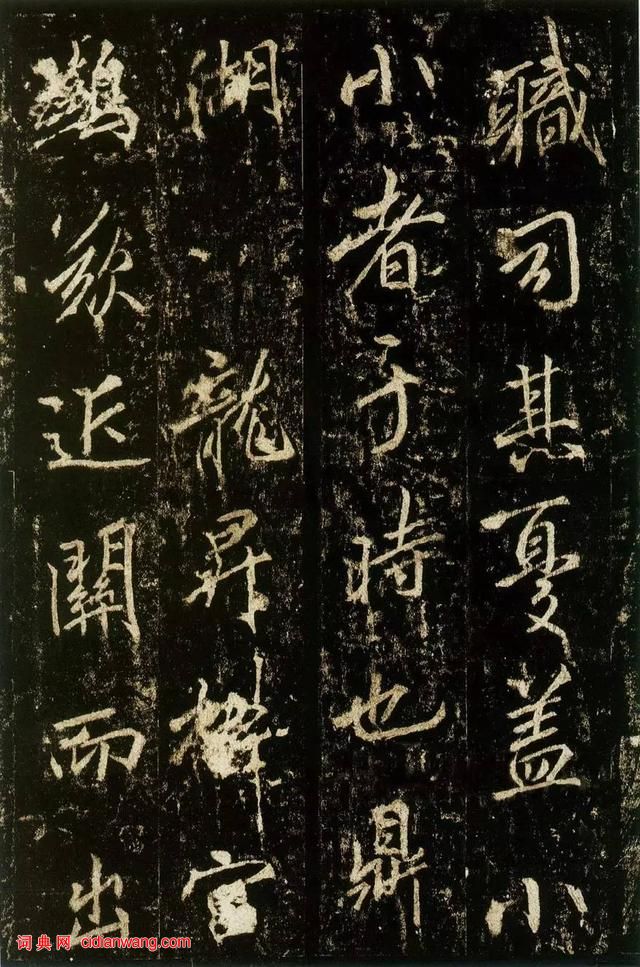 職司其憂蓋小
小者于時也鼎
湖龍昇宮
欻近關而出
词典网 cidianwang.com